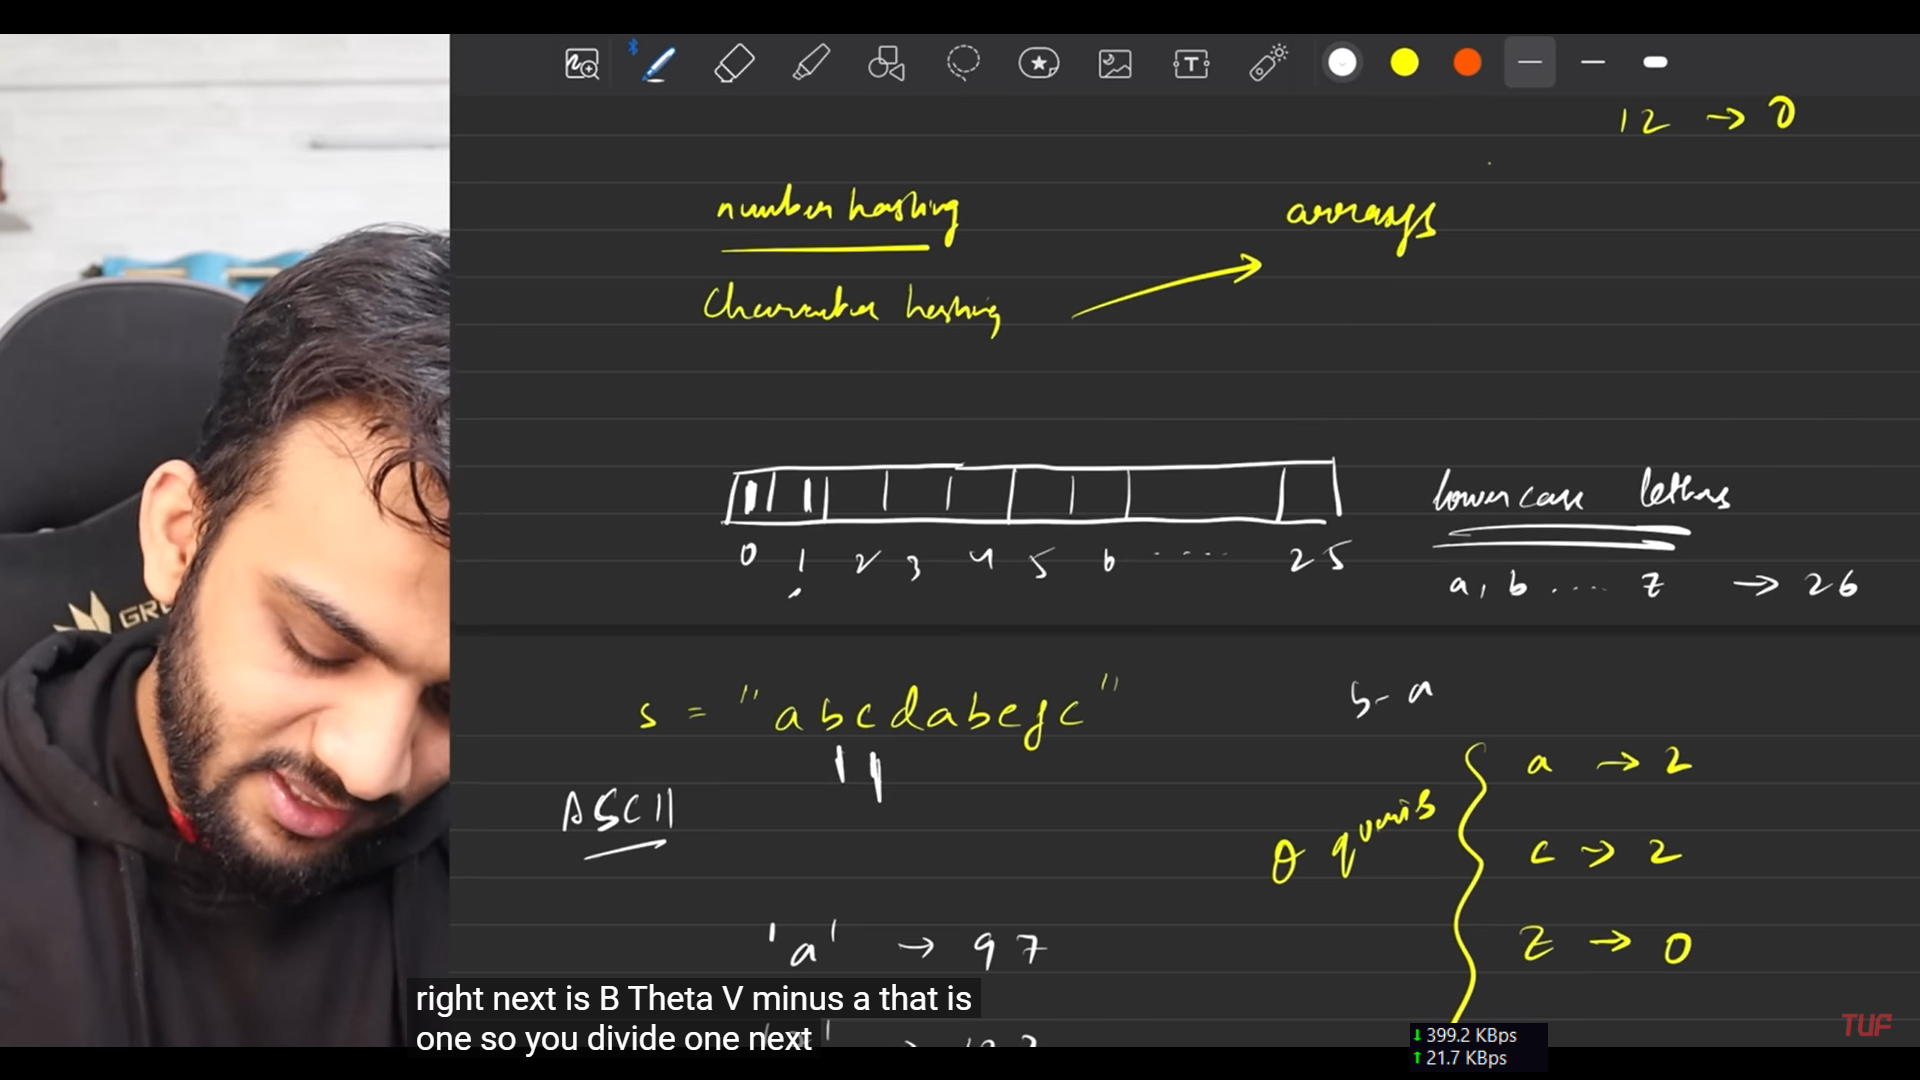 12 → 0
number hashing
arrays
Character hashing
0 1 2 3 4 5 6 ..... 25
lowercase letters
a, b .... z → 26
s = "abcdabefc"
b - a
ASCII
Q queries
a → 2
c → 2
z → 0
'a' → 97
GR
right next is B Theta V minus a that is
one so you divide one next
TUF
↓ 399.2 KBps
↑ 21.7 KBps